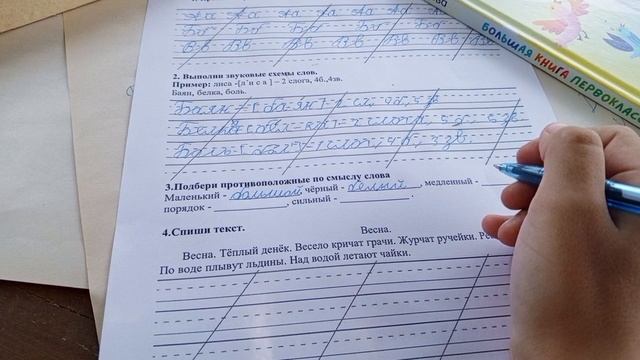 Аа Аа Аа Аа Аа
Бб Бб Бб Бб Бб
Вв Вв Вв Вв Вв Вв
БОЛЬШАЯ КНИГА ПЕРВОКЛАС
2. Выполни звуковые схемы слов.
Пример: лиса -[л'и с а ] – 2 слога, 4б,4зв.
Баян, белка, боль.
Баян
Белка
Боль
3.Подбери противоположные по смыслу слова
Маленький - большой, чёрный - белый, медленный -
порядок - , сильный - .
4.Спиши текст.
Весна.
Весна. Тёплый денёк. Весело кричат грачи. Журчат ручейки.
По воде плывут льдины. Над водой летают чайки.